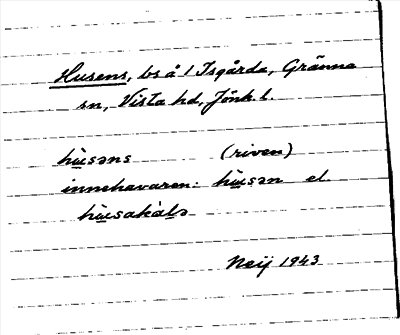 Husens, bs å 1 Isgårda, Gränna
sn, Vista hd, Jönk. l.
hu̲səns (riven)
innehavaren: hu̲sən el.
hu̲sakàlə
Neij 1943